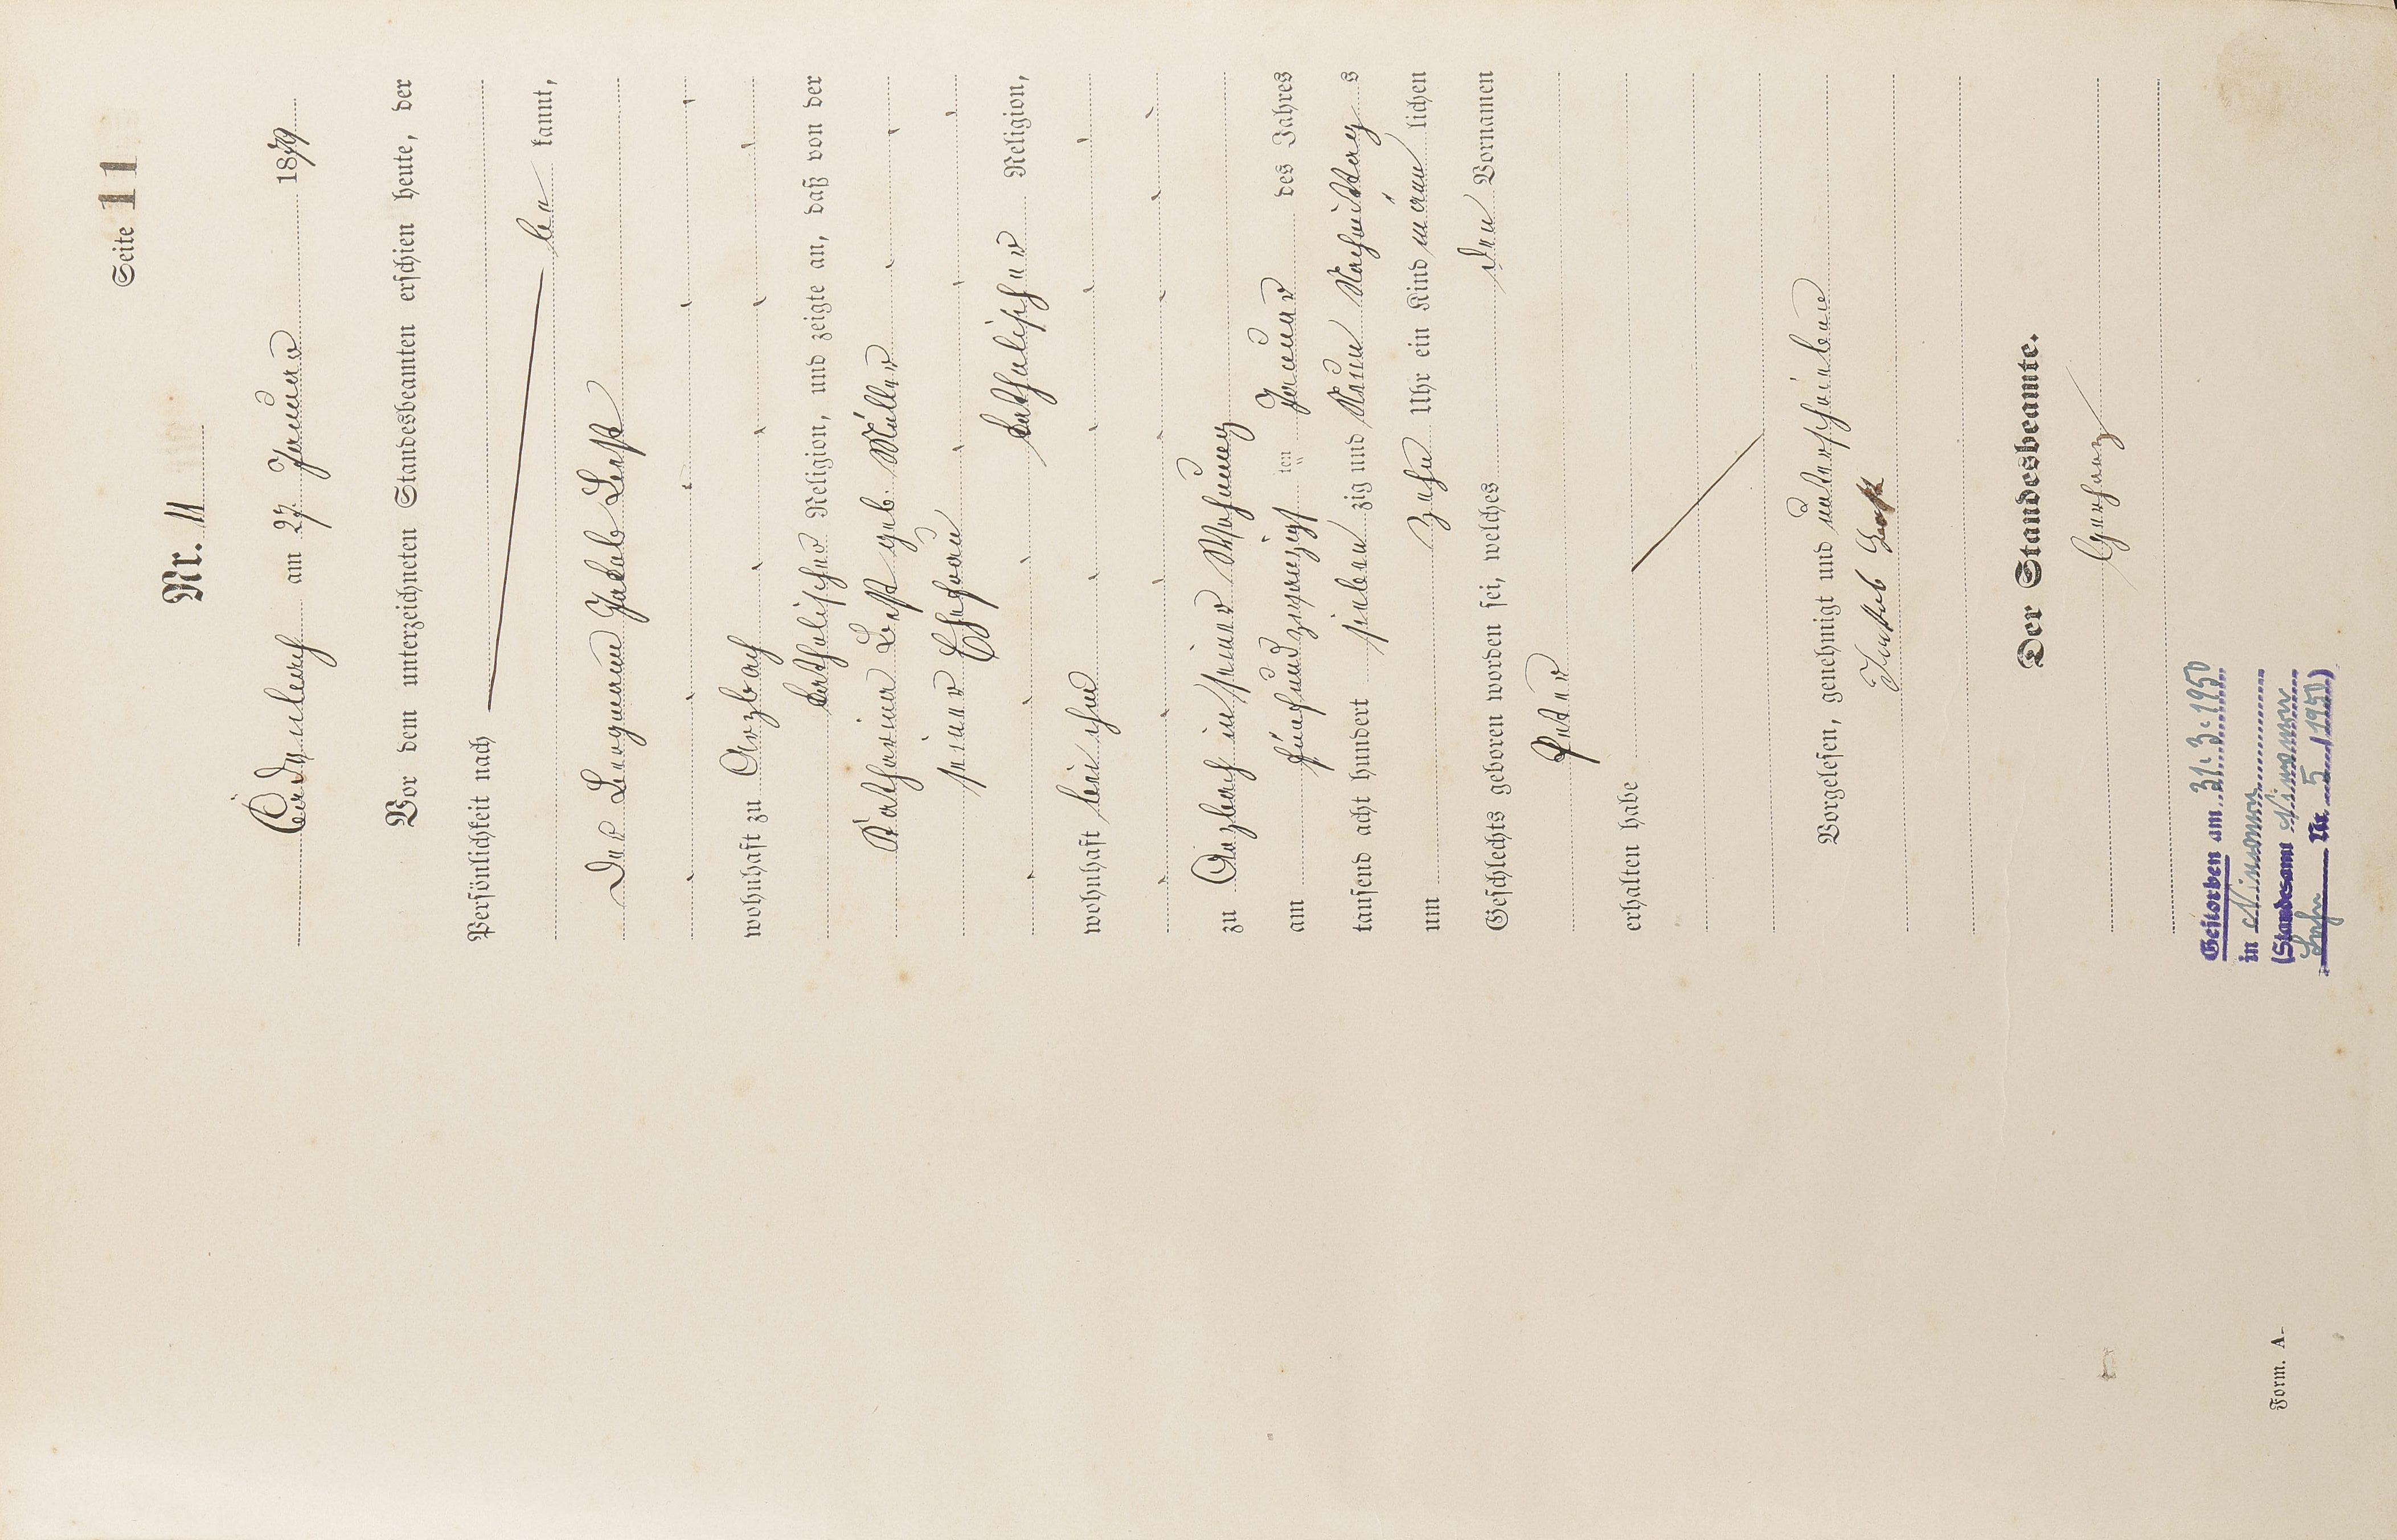 Seite 11
Nr. 11
Cadenbach am 27. Januar 1879
Vor dem unterzeichneten Standesbeamten erschien heute, der
Persönlichkeit nach
be kannt,
Der Bergmann Jakob
wohnhaft zu Arzbach
katholischer Religion, und zeigte an, daß von der
Katharina geb. Müller
seiner Ehefrau
katholischer Religion,
wohnhaft bei ihm
zu Arzbach in seiner Wohnung
am fünfundzwanzigsten Januar des Jahres
tausend acht hundert sieben zig und Neun Nachmittags
um zehn Uhr ein Kind männlichen
Geschlechts geboren worden sei, welches den Vornamen
Peter
erhalten habe
Vorgelesen, genehmigt und unterschrieben
Jakob
Der Standesbeamte.
Gestorben am 31.3.1950
in
(Standesamt
Nr. 5 / 1950)
Form. A.